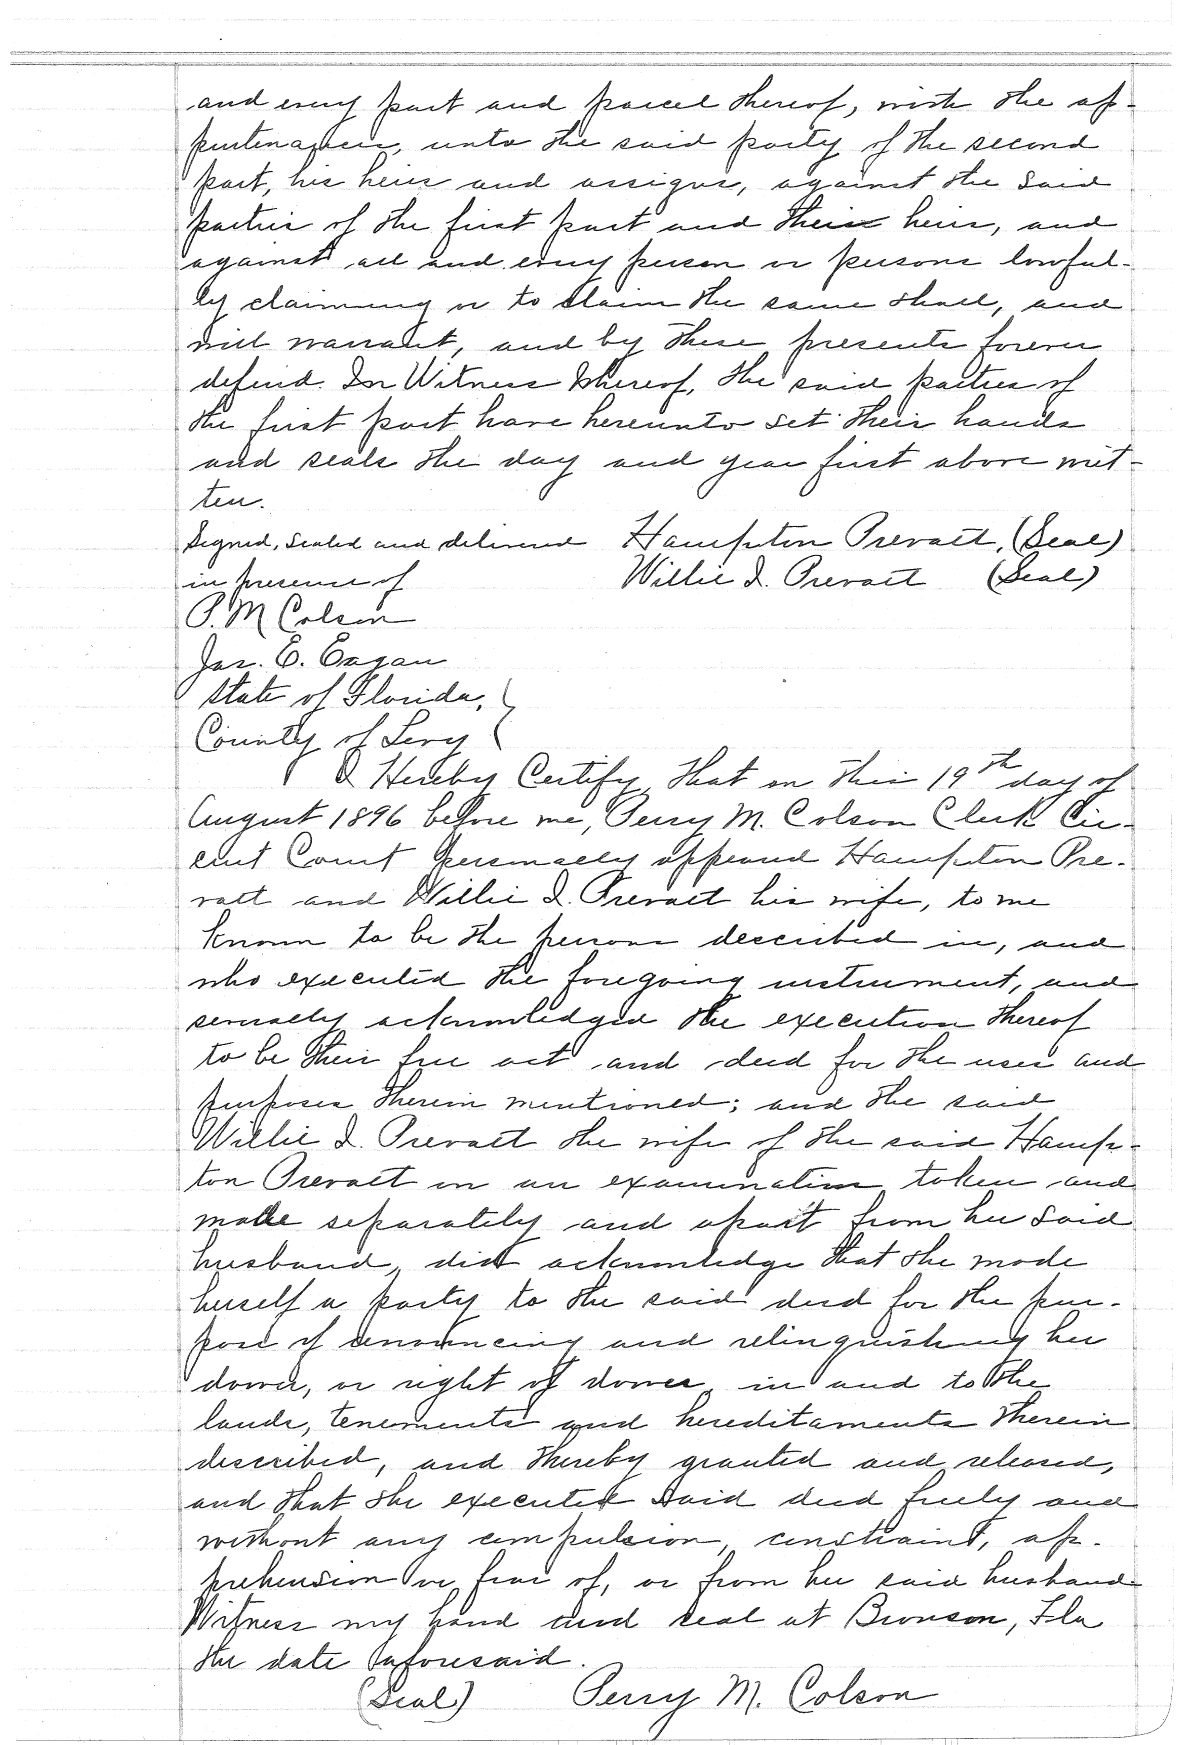 and every part and parcel thereof, with the ap-
purtenances, unto the said party of the second
part, his heirs and assigns, against the said
parties of the first part and their heirs, and
against all and every person or persons lawful-
ly claiming or to claim the same shall, and
will warrant, and by these presents forever
defend. In Witness Whereof, the said parties of
the first part have hereunto set their hands
and seals the day and year first above writ-
ten.
Signed, sealed and delivered Hampton Prevatt, (Seal)
in presence of Willie I. Prevatt (Seal)
P. M Colson
Jas. E. Eagan
State of Florida,
County of Levy
I Hereby Certify, that on this 19th day of
August 1896 before me, Perry M. Colson Clerk Cir-
cuit Court personally appeared Hampton Pre-
vatt and Willie I. Prevatt his wife, to me
known to be the persons described in, and
who executed the foregoing instrument, and
severally acknowledged the execution thereof
to be their free act and deed for the uses and
purposes therein mentioned; and the said
Willie I. Prevatt the wife of the said Hamp-
ton Prevatt on an examination taken and
made separately and apart from her said
husband, did acknowledge that she made
herself a party to the said deed for the pur-
pose of renouncing and relinquishing her
dower, or right of dower, in and to the
lands, tenements and hereditaments therein
described, and thereby granted and released,
and that she executed said deed freely and
without any compulsion, constraint, ap-
prehension or fear of, or from her said husband
Witness my hand and seal at Bronson, Fla
the date aforesaid.
(Seal) Perry M. Colson